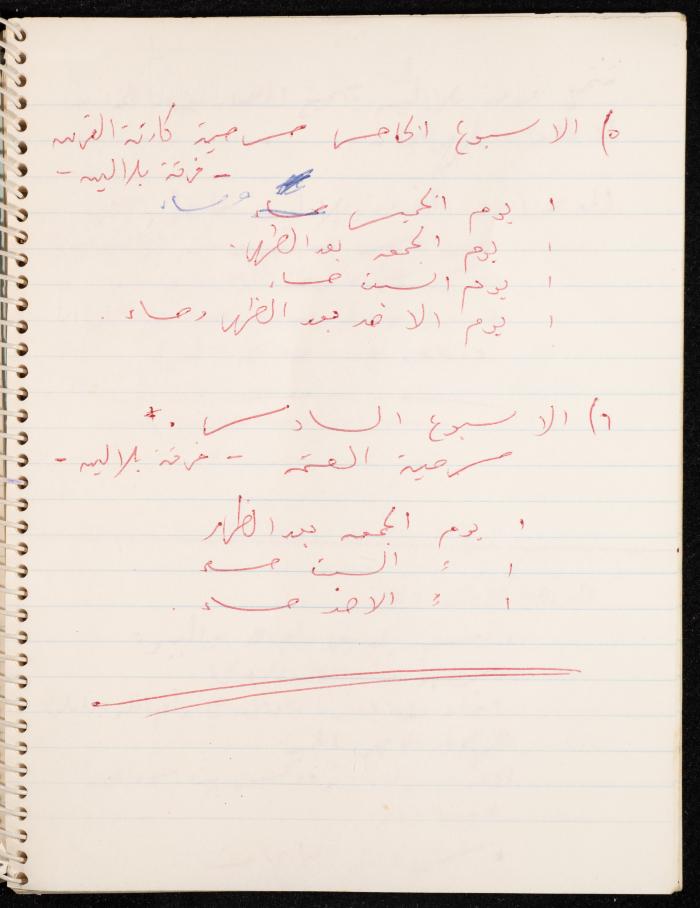 ٥) الاسبوع الخامس مسرحية كارثة القرن
- فرقة بلالين -
١ يوم الخميس مساء ومساء
١ يوم الجمعه بعد الظهر .
١ يوم السبت مساء
١ يوم الاحد بعد الظهر ومساء .
٦) الاسبوع السادس . *
مسرحية العتمة - فرقة بلالين -
١ يوم الجمعه بعد الظهر
١ " السبت مساء
١ " الاحد مساء .